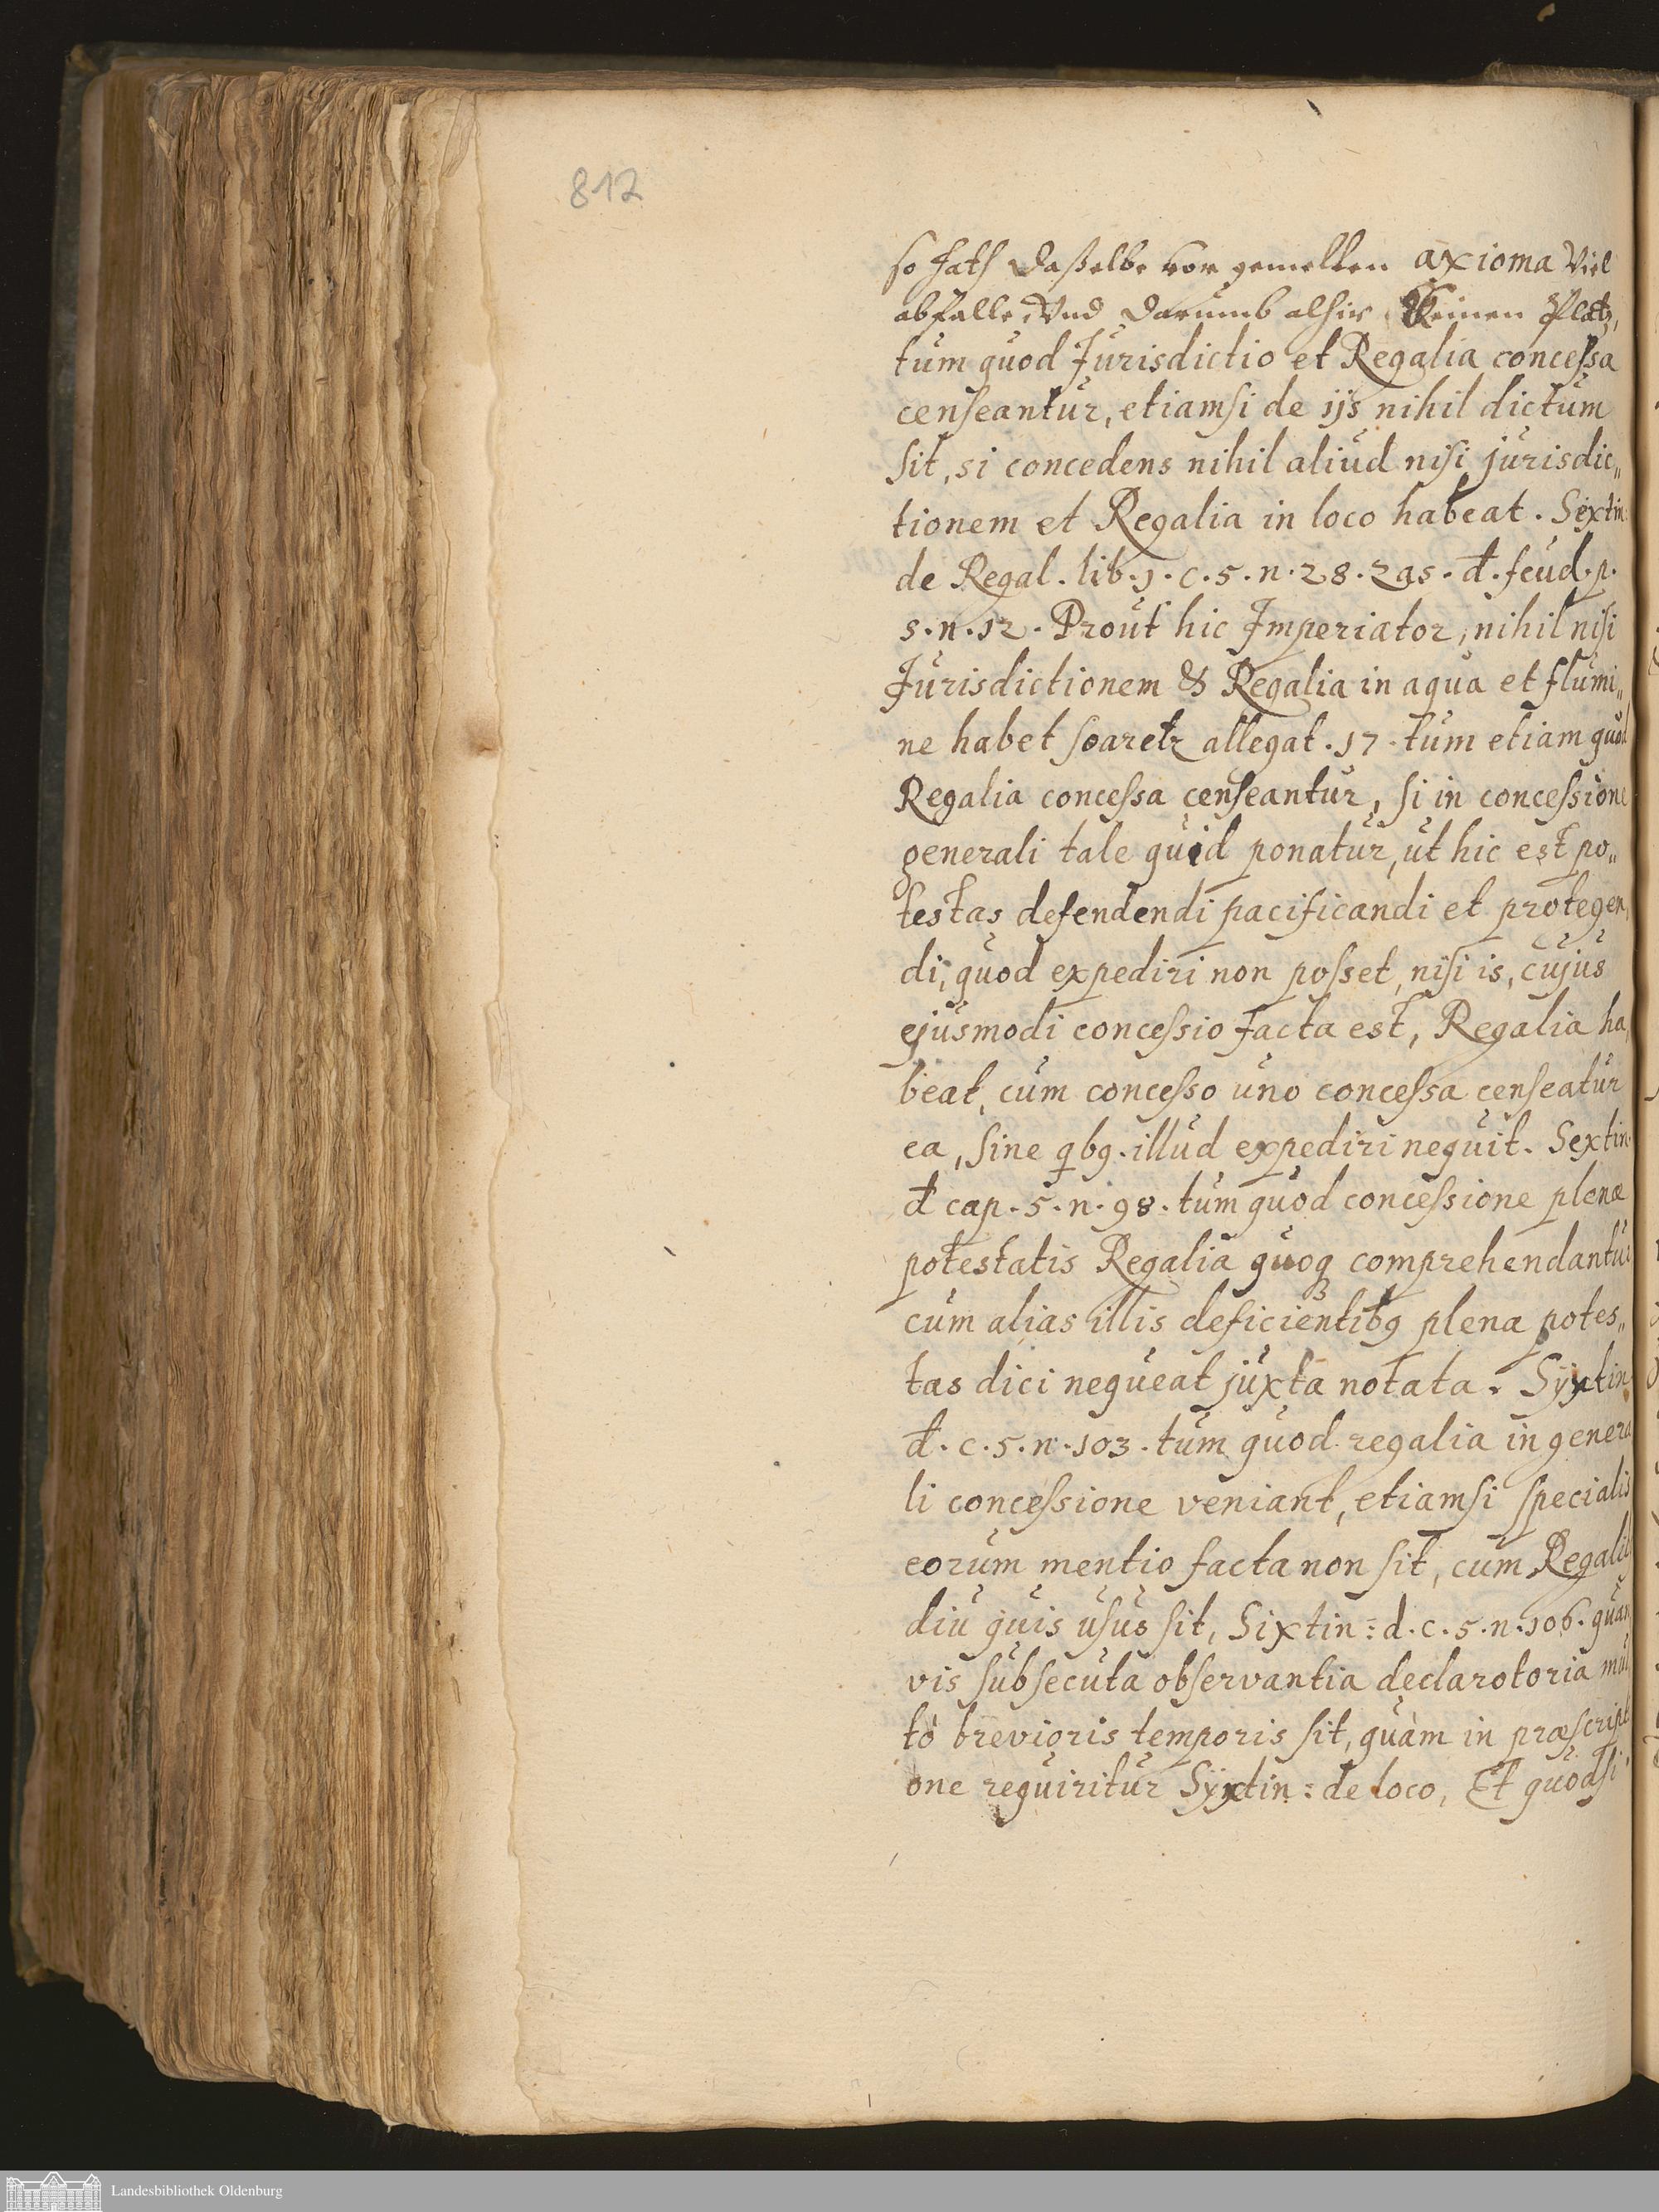 812
so hath daßelbe vor gemelten axioma Viel
abfalle, Vnd darumb alhir Keinen Platz,
tum quod Jurisdictio et Regalia concessa
censeantur, etiamsi de ijs nihil dictum
sit, si concedens nihil aliud nisi jurisdic„
tionem et Regalia in loco habeat. Sixtin:
de Regal. lib. 1. c. 5. n. 28. Zas. d. feud. p.
5. n. 12. Prout hic Imperiator, nihil nisi
Jurisdictionem & Regalia in aqua et flumi„
ne habet soaretz allegat. 17. tum etiam quod
Regalia concessa censeantur, si in concessione
generali tale quid ponatur, ut hic est po„
testas defendendi pacificandi et protegen„
di, quod expediri non posset, nisi is, cujus
ejusmodi concessio facta est, Regalia ha„
beat, cum concesso uno concessa censeatur
ea, sine qbg. illud expediri nequit. Sextin.
d cap. 5. n. 98. tum quod concessione plenæ
potestatis Regalia quoq comprehendantur
cum alias illis deficientibg plena potes„
tas dici nequeat juxta notata. Sÿxtin.
d. c. 5. n. 103. tum quod regalia in genera
li concessione veniant, etiamsi specialis
eorum mentio facta non sit, cum Regalib
diu quis usus sit, Sixtin: d. c. 5. n. 106. quam
vis subsecuta observantia declarotoria mul
tò brevioris temporis sit, quàm in præscripti
one requiritur Sÿxtin: de loco, Et quodsi
Landesbibliothek Oldenburg